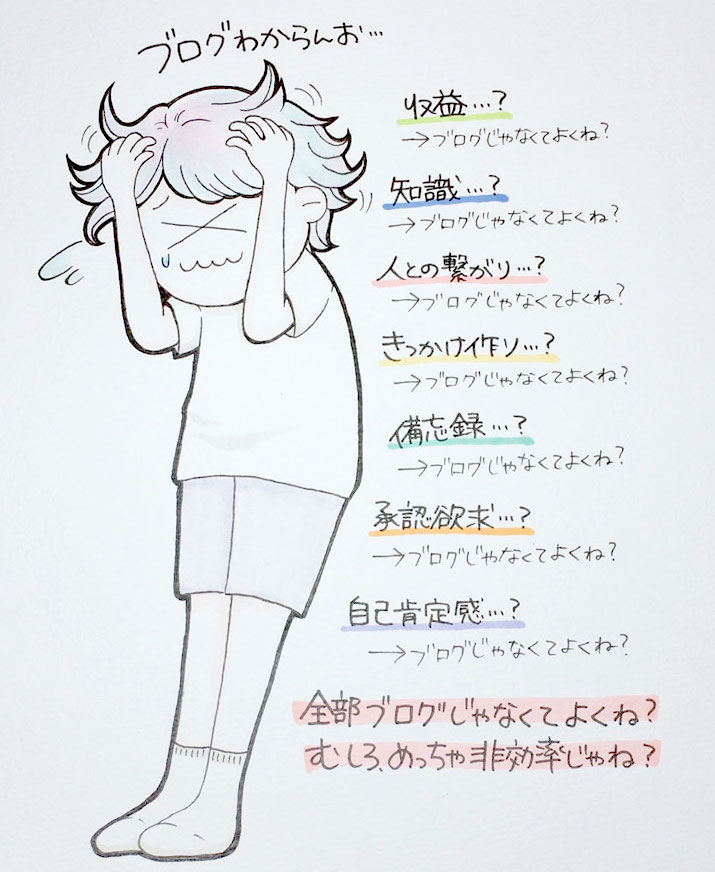 ブログわからんお…
収益…?
→ブログじゃなくてよくね?
知識…?
→ブログじゃなくてよくね?
人との繋がり…?
→ブログじゃなくてよくね?
きっかけ作り…?
→ブログじゃなくてよくね?
備忘録…?
→ブログじゃなくてよくね?
承認欲求…?
→ブログじゃなくてよくね?
自己肯定感…?
→ブログじゃなくてよくね?
全部ブログじゃなくてよくね?
むしろ、めっちゃ非効率じゃね?